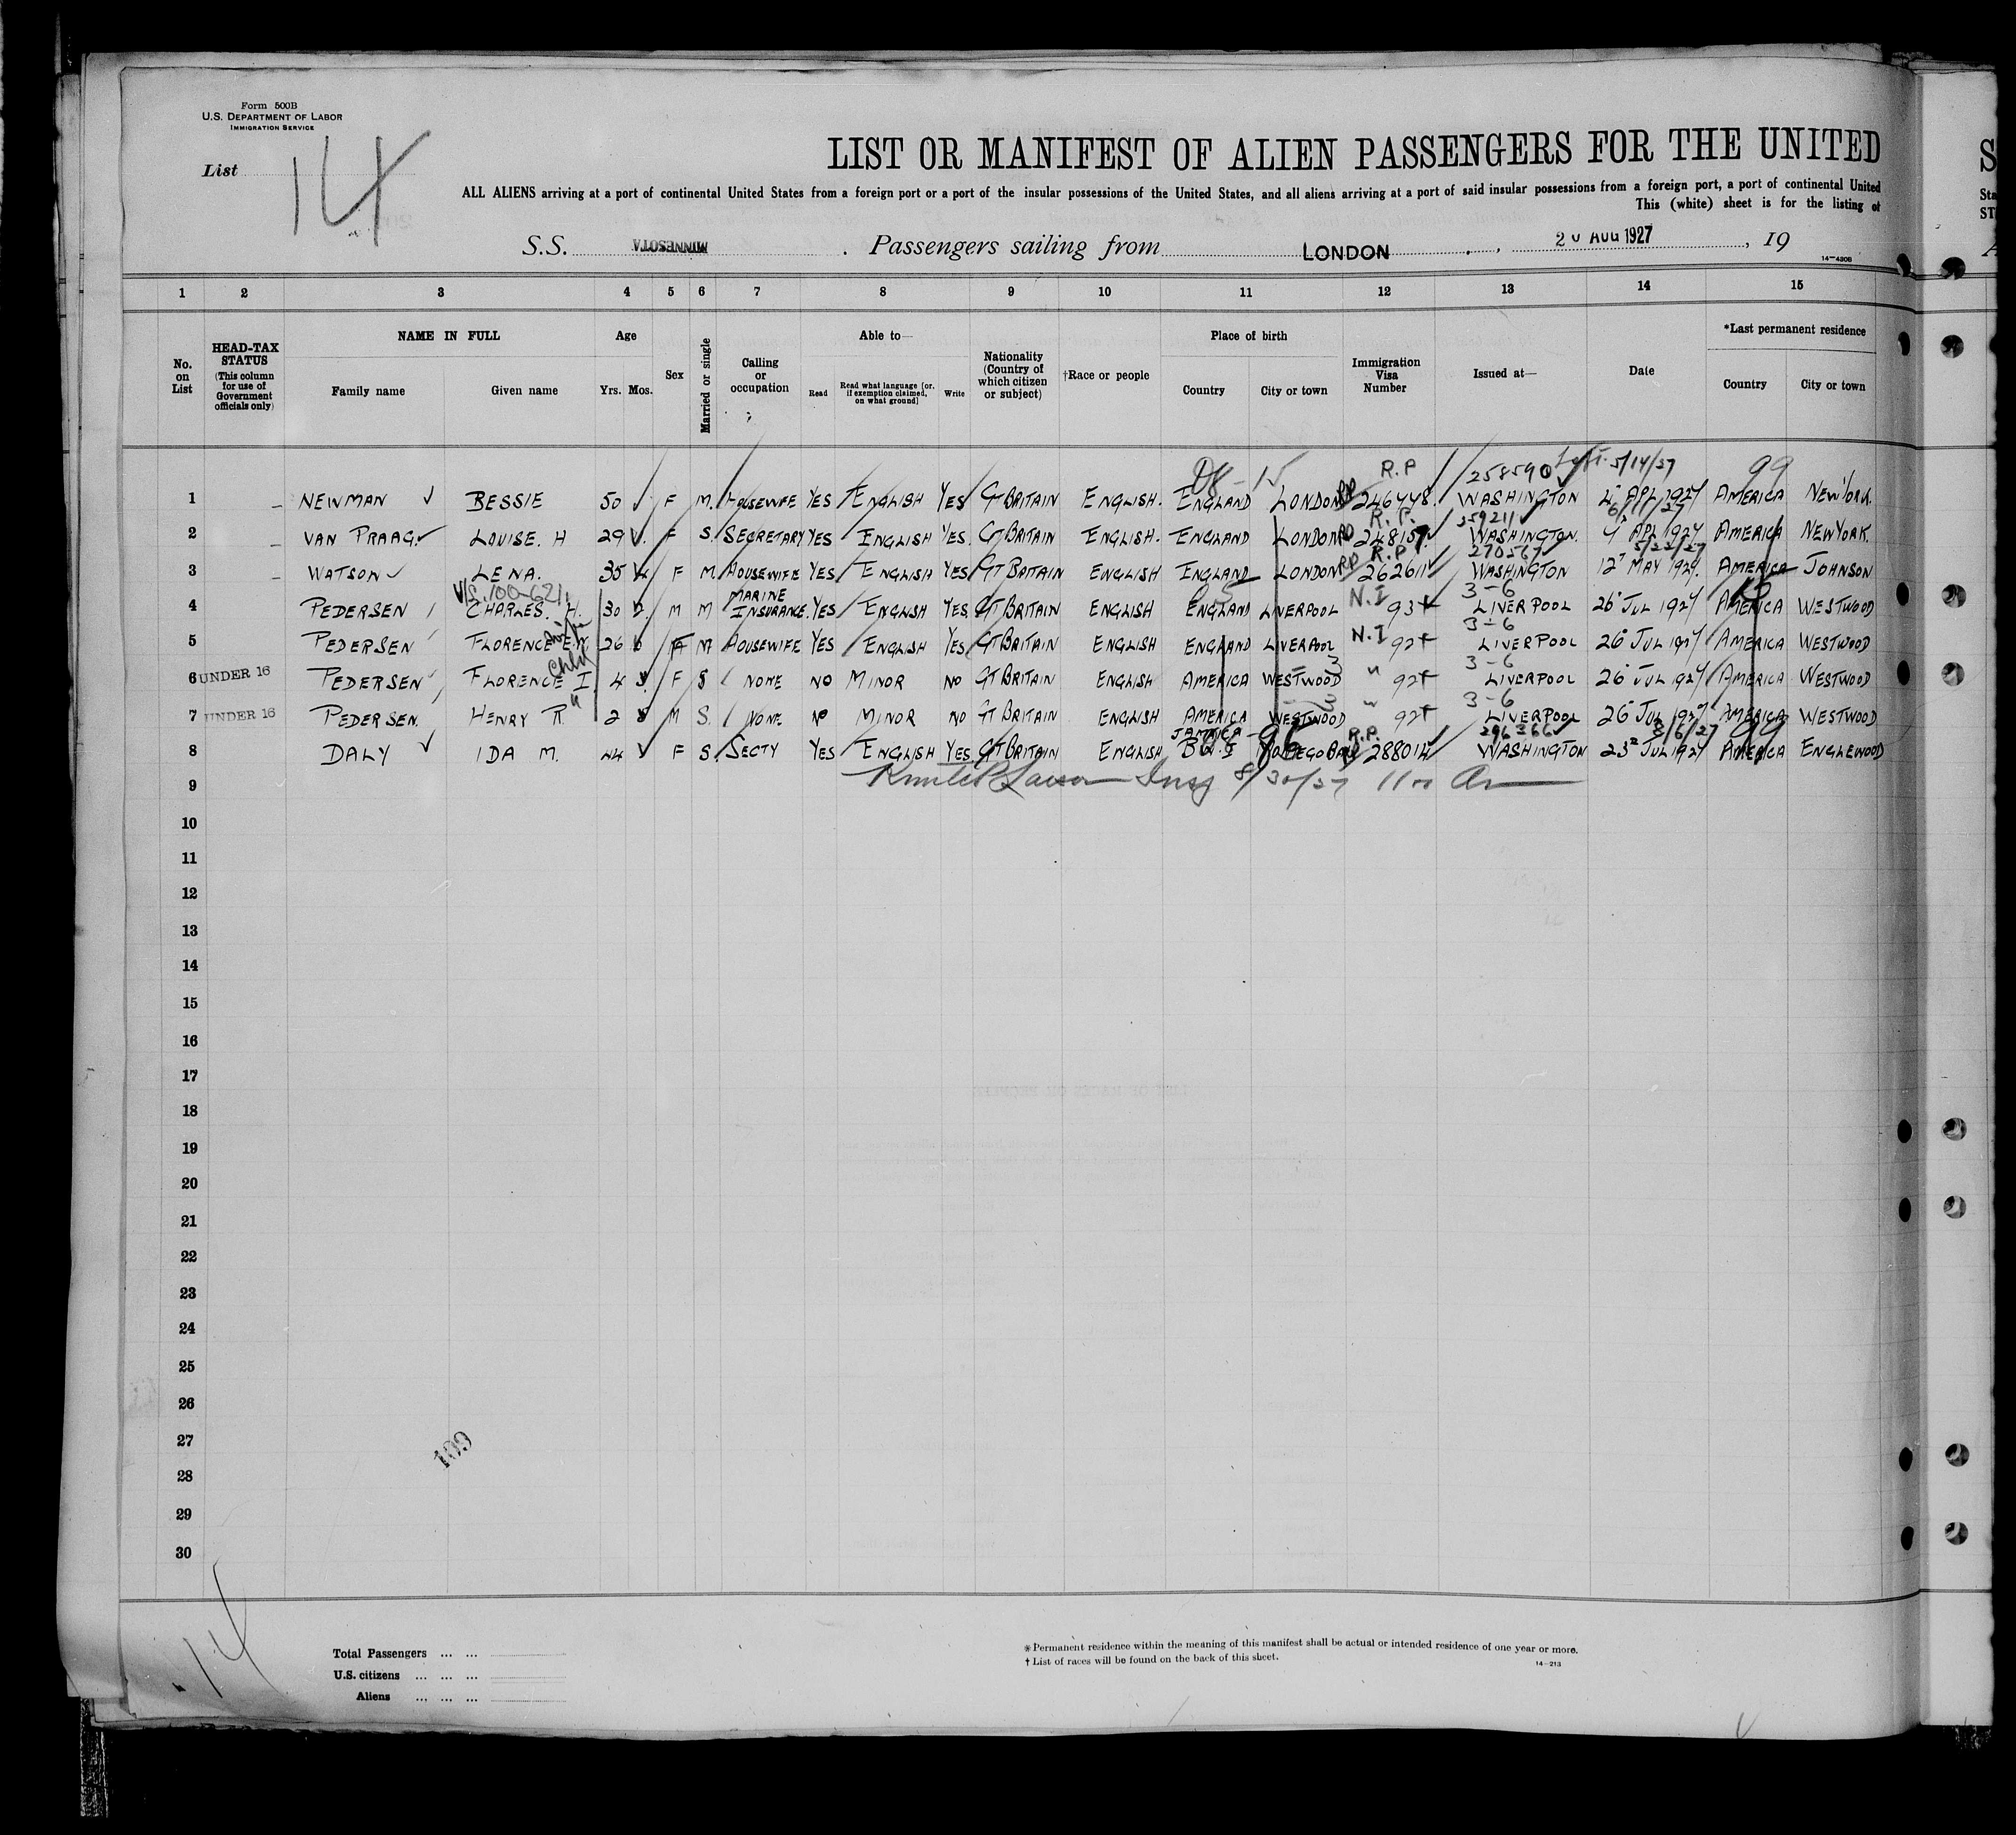 Form 500B
U.S. DEPARTMENT OF LABOR
IMMIGRATION SERVICE
List 14
LIST OR MANIFEST OF ALIEN PASSENGERS FOR THE UNITED
ALL ALIENS arriving at a port of continental United States from a foreign port or a port of the insular possessions of the United States, and all aliens arriving at a port of said insular possessions from a foreign port, a port of continental United
This (white) sheet is for the listing of
S.S. MINNESOTA . Passengers sailing from LONDON , 20 AUG 1927, 19
14-430B
1 2 3 4 5 6 7 8 9 10 11 12 13 14 15
No. on List
HEAD-TAX STATUS (This column for use of Government officials only)
NAME IN FULL
Family name Given name
Age
Yrs. Mos.
Sex
Married or single
Calling or occupation
Able to—
Read Read what language [or, if exemption claimed, on what ground] Write
Nationality (Country of which citizen or subject)
†Race or people
Place of birth
Country City or town
Immigration Visa Number
Issued at—
Date
*Last permanent residence
Country City or town
R.P 258590 5/14/27 99
1 NEWMAN BESSIE 50 F M HOUSEWIFE YES ENGLISH YES GT BRITAIN ENGLISH. ENGLAND LONDON RP 246448. WASHINGTON APL 1927 AMERICA NEW YORK.
R.P. 259211
2 VAN PRAAG LOUISE. H 29 F S. SECRETARY YES ENGLISH YES. GT BRITAIN ENGLISH. ENGLAND LONDON 248157. WASHINGTON. APL 1927 AMERICA NEW YORK.
R.P 270567 5/23/27
3 WATSON LENA. 35 F M. HOUSEWIFE YES ENGLISH YES GT BRITAIN ENGLISH ENGLAND LONDON RP 262611 WASHINGTON 12 MAY 1927. AMERICA JOHNSON
MARINE N.I 3-6
4 PEDERSEN CHARLES. H. 30 M M INSURANCE. YES ENGLISH YES GT BRITAIN ENGLISH ENGLAND LIVERPOOL 93 LIVERPOOL 26 JUL 1927 AMERICA WESTWOOD
wife N.I 3-6
5 PEDERSEN FLORENCE E.W. 26 F M HOUSEWIFE YES ENGLISH YES GT BRITAIN ENGLISH ENGLAND LIVERPOOL 92 LIVERPOOL 26 JUL 1927 AMERICA WESTWOOD
Child 3 3-6
6 UNDER 16 PEDERSEN FLORENCE I. 4 F S NONE NO MINOR NO GT BRITAIN ENGLISH AMERICA WESTWOOD " 92 LIVERPOOL 26 JUL 1927 AMERICA WESTWOOD
" 3 3-6
7 UNDER 16 PEDERSEN. HENRY R. 2 M S. NONE NO MINOR NO GT BRITAIN ENGLISH AMERICA WESTWOOD " 92 LIVERPOOL 26 JUL 1927 AMERICA WESTWOOD
JAMAICA R.P. 296366 8/6/27 99
8 DALY IDA M. 44 F S. SECTY YES ENGLISH YES GT BRITAIN ENGLISH B.W.I MONTEGO BAY 288014 WASHINGTON 23 JUL 1927 AMERICA ENGLEWOOD
8/30/27
9
10
11
12
13
14
15
16
17
18
19
20
21
22
23
24
25
26
27
28
29
30
109
14
Total Passengers ... ...
U.S. citizens ... ... ...
Aliens ... ... ...
*Permanent residence within the meaning of this manifest shall be actual or intended residence of one year or more.
†List of races will be found on the back of this sheet.
14-213